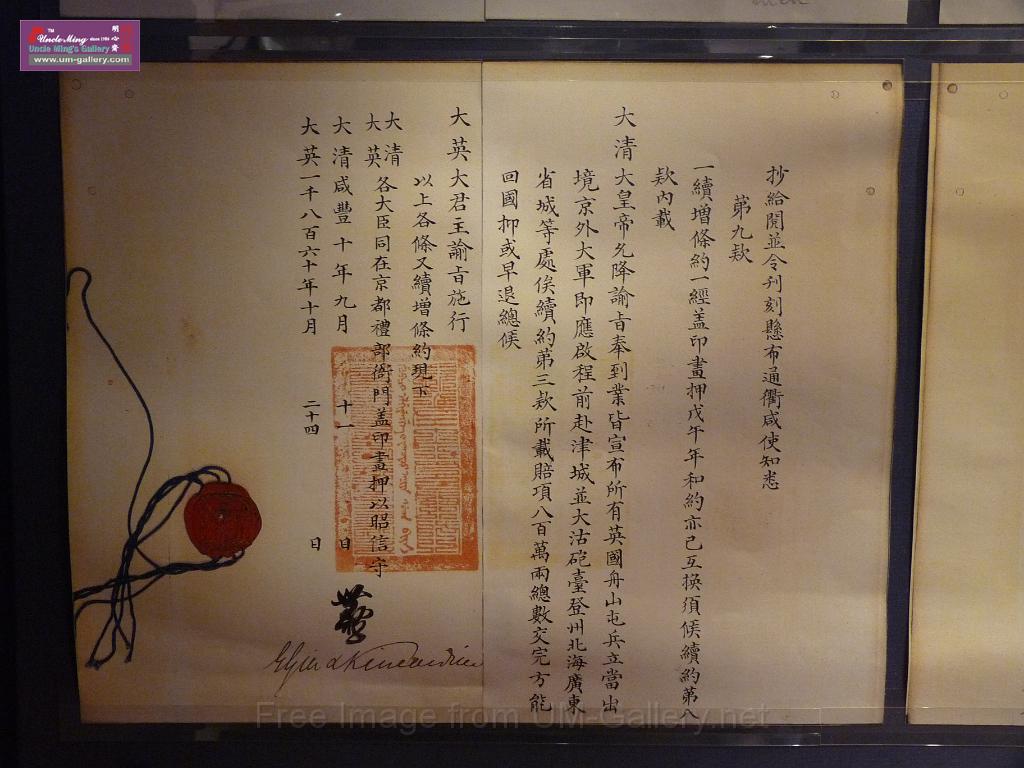 抄給閱並令刊刻懸布通衢咸使知悉
第九款
一續增條約一經盖印畫押戊午年和約亦已互換須候續約第八
款內載
大清大皇帝允降諭旨奉到業皆宣布所有英國舟山屯兵立當出
境京外大軍即應啟程前赴津城並大沽砲臺登州北海廣東
省城等處俟續約第三款所載賠項八百萬兩總數交完方能
回國抑或早退總候
大英大君主諭旨施行
以上各條又續增條約現下
大清
大英各大臣同在京都禮部衙門盖印畫押以昭信守
大清咸豐十年九月十一日
大英一千八百六十年十月二十四日
Elgin & Kincardine
TM
Uncle Ming since 1986
明心齋
Uncle Ming's Gallery
www.um-gallery.com
Free Image from UM-Gallery.net